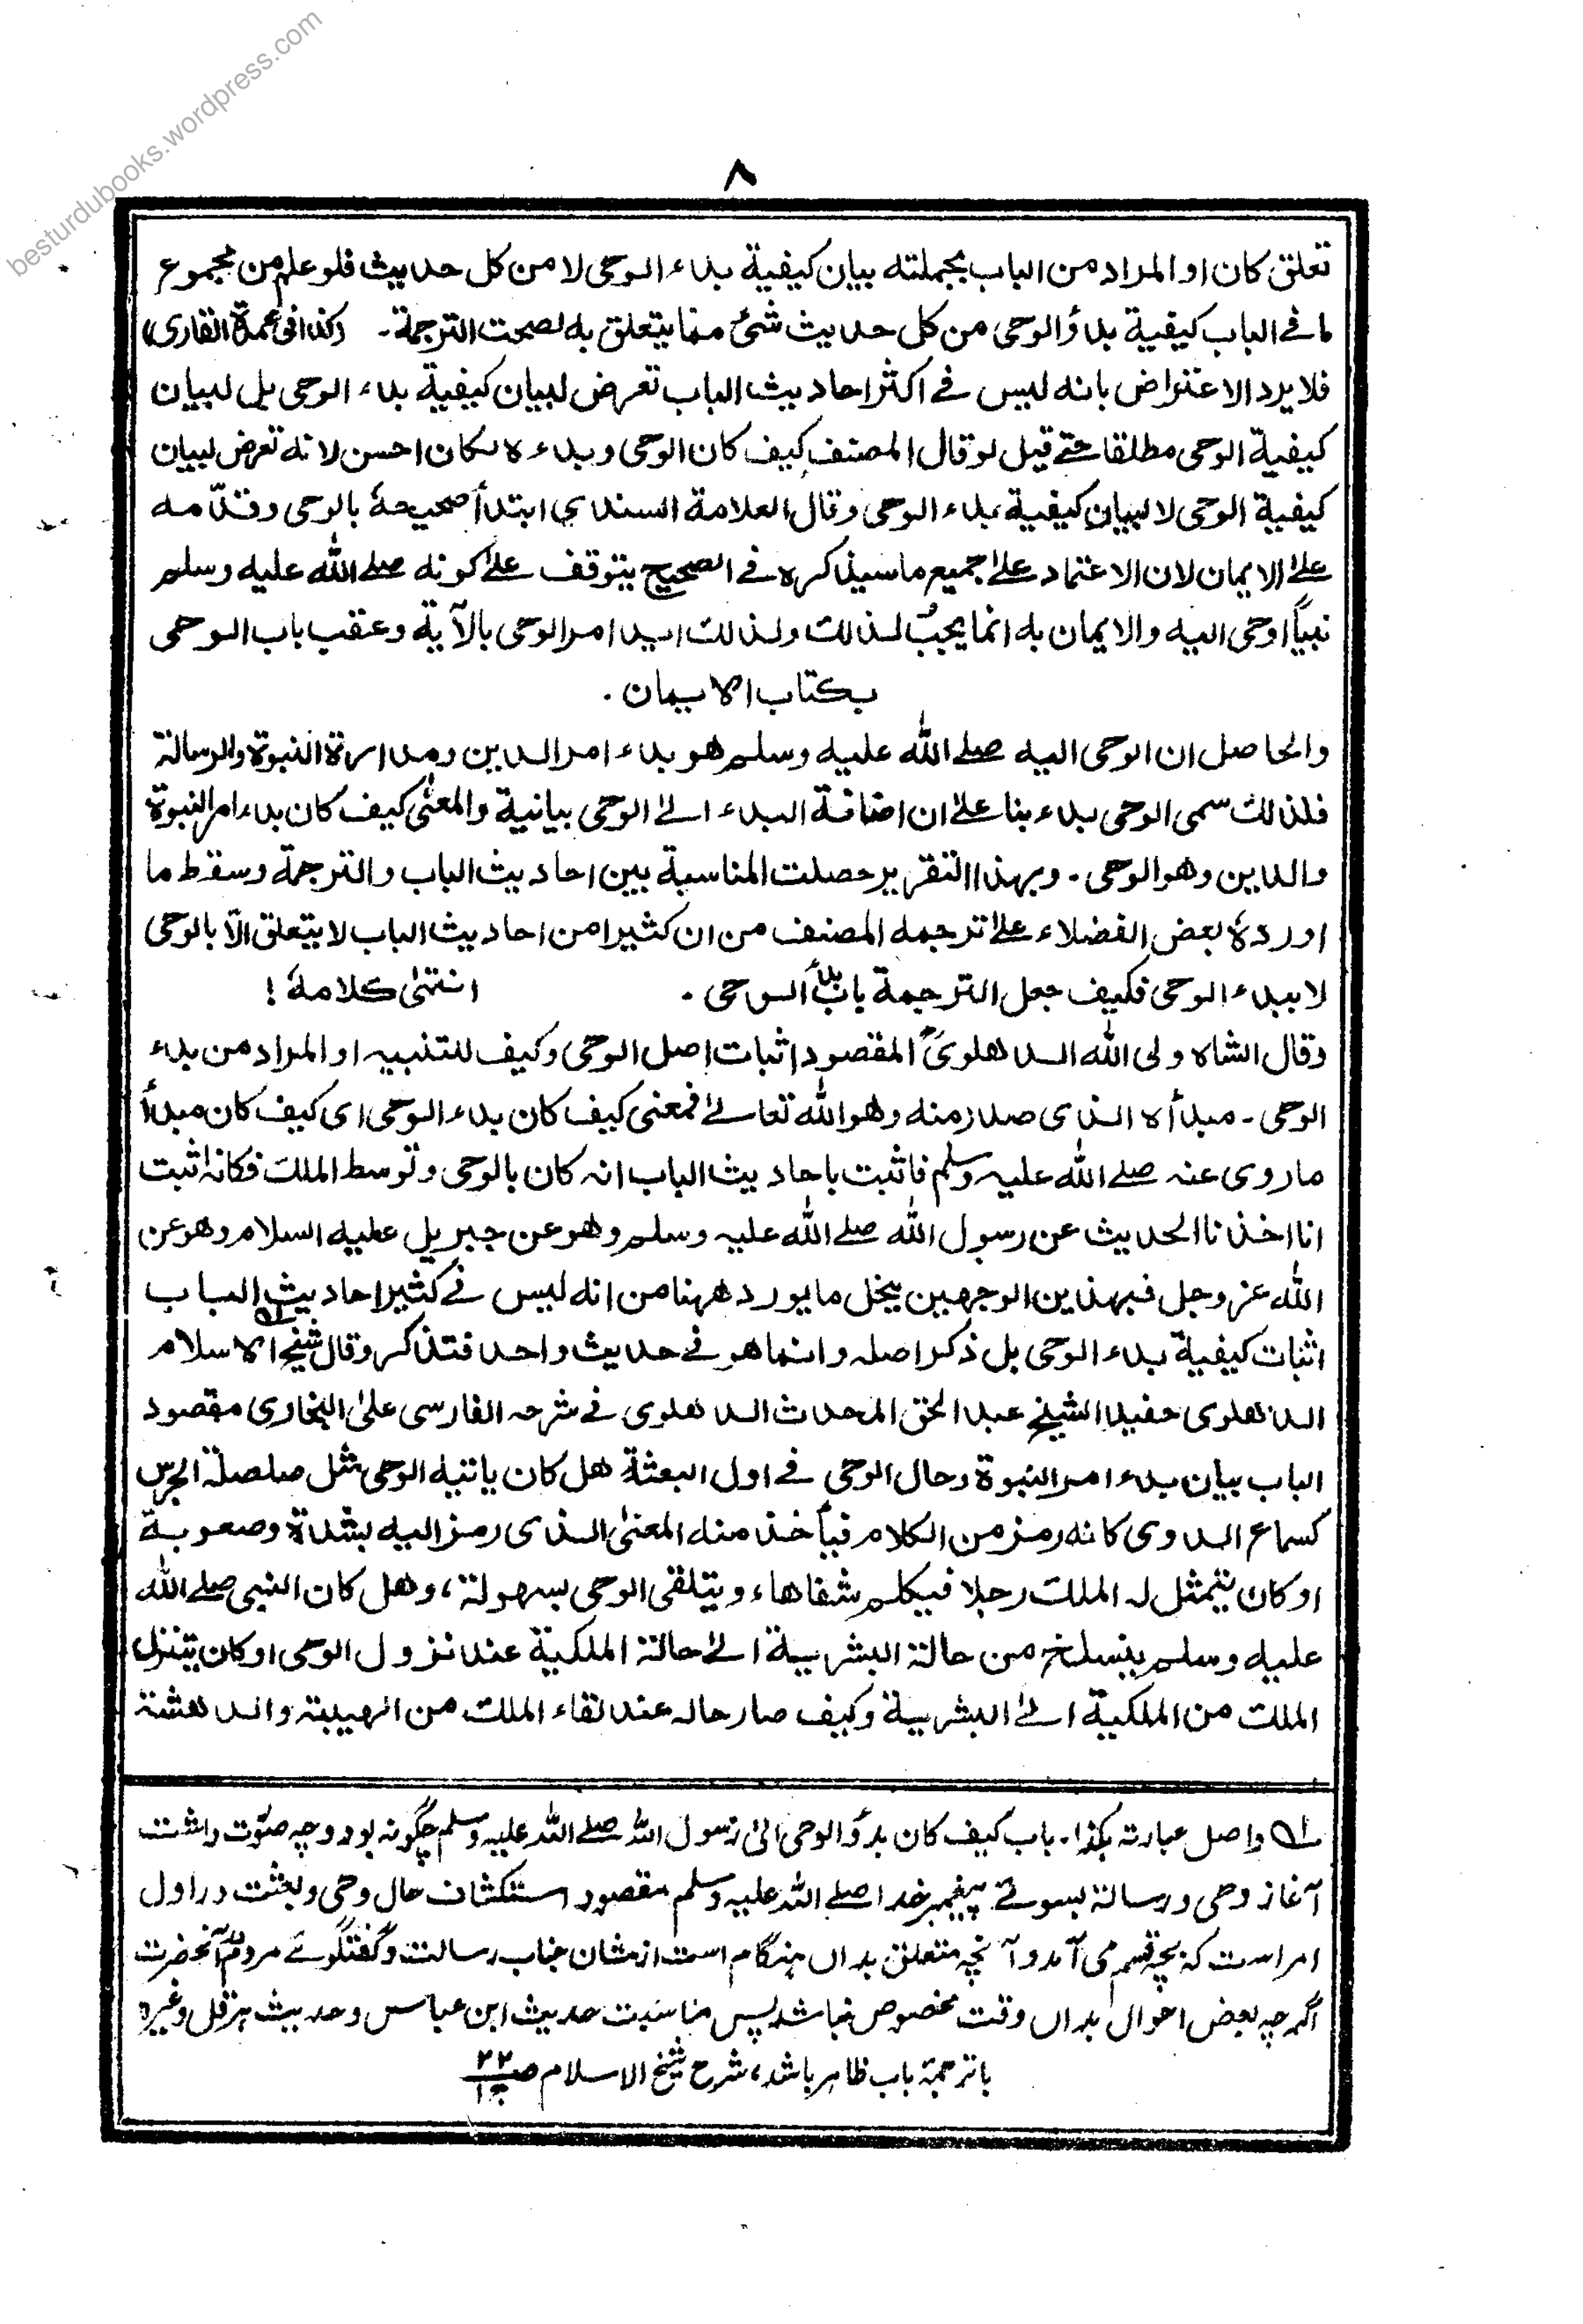 besturdubooks.wordpress.com
٨
تعلق كان او المراد من الباب بجملته بيان كيفية بداء الوحى لا من كل حديث فلو علم من مجموع
ما فے الباب كيفية بدأ الوحى من كل حديث شئ مما يتعلق به لصحت الترجمة۔ (كذا فى عمدة القارى)
فلا يرد الاعتراض بانه ليس فے اكثر احاديث الباب تعرض لبيان كيفية بداء الوحى بل لبيان
كيفية الوحى مطلقا حتے قيل لو قال المصنف كيف كان الوحى وبداءه لكان احسن لانه تعرض لبيان
كيفية الوحى لا لبيان كيفية بداء الوحى وقال العلامة السندى ابتدأ صحيحهٗ بالوحى وقدّمه
علےٰ الايمان لان الاعتماد علےٰ جميع ما سيذكره فے الصحيح يتوقف علےٰ كونه صلے اللّٰه عليه وسلم
نبياً اوحى اليه والايمان به انما يجبُ لذلك ولذلك ايد امر الوحى بالآية وعقب باب الوحى
بكتاب الايمان .
والحاصل ان الوحى اليه صلے اللّٰه عليه وسلم هو بداء امر الدين ومدارة النبوة والرسالة
فلذلك سمى الوحى بداء بنا علےٰ ان اضافة البداء الےٰ الوحى بيانية والمعنىٰ كيف كان بداء امر النبوة
والدين وهو الوحى . وبهذا التقرير حصلت المناسبة بين احاديث الباب والترجمة وسقط ما
اوردهٗ بعض الفضلاء علےٰ ترجمه المصنف من ان كثيرا من احاديث الباب لا يتعلق الّا بالوحى
لا ببداء الوحى فكيف جعل الترجمة باب بدأ الوحى . انتهىٰ كلامهٗ !
وقال الشاه ولى اللّٰه الدهلوىؒ المقصود اثبات اصل الوحى وكيف للتنبيه او المراد من بداء
الوحى ۔ مبدأه الذى صدر منه وهو اللّٰه تعالےٰ فمعنى كيف كان بداء الوحى اى كيف كان مبدأ
ما روى عنه صلے اللّٰه عليه وسلم فاثبت باحاديث الباب انه كان بالوحى وتوسط الملك فكانه اثبت
انا اخذنا الحديث عن رسول اللّٰه صلے اللّٰه عليه وسلم وهو عن جبريل عليه السلام وهو عن
اللّٰه عز وجل فبهذين الوجهين يخل ما يورد ههنا من انه ليس فے كثير احاديث الباب
اثبات كيفية بداء الوحى بل ذكر اصله وانما هو فے حديث واحد فتذكر وقال شيخ الاسلام ؎۱
الدهلوى حفيد الشيخ عبد الحق المحدث الدهلوى فے شرحه الفارسى علىٰ البخارى مقصود
الباب بيان بداء امر النبوة وحال الوحى فے اول البعثة هل كان ياتيه الوحى مثل صلصلة الجرس
كسماع الدوى كانه رمز من الكلام فيأخذ منه المعنىٰ الذى رمز اليه بشدة وصعوبة
او كان يتمثل له الملك رجلا فيكلم شفاها، ويتلقى الوحى بسهولة، وهل كان النبى صلے اللّٰه
عليه وسلم ينسلخ من حالة البشرية الےٰ حالة الملكية عند نزول الوحى او كان يتنزل
الملك من الملكية الےٰ البشرية وكيف صار حاله عند لقاء الملك من الهيبة والدهشة
؎۱ واصل عبارته هكذا۔ باب كيف كان بدؤ الوحى الىٰ رسول اللّٰه صلے اللّٰه عليه وسلم چگونه بود و چه صوّت داشت
آغاز وحی و رسالة بسوئے پیغمبر خدا صلے اللّٰه علیه وسلم مقصود استکشاف حال وحی و بعثت در اول
امر است که بچه قسم می آمد و آنچه متعلق بداں ہنگام است از شان جناب رسالت و گفتگوئے مردم آنحضرت
اگرچه بعض احوال بداں وقت مخصوص نباشد پس مناسبت حدیث ابن عباس وحدیث ہرقل وغیره
با ترجمۂ باب ظاہر باشد، شرح شیخ الاسلام صـ۲۲ ج۱